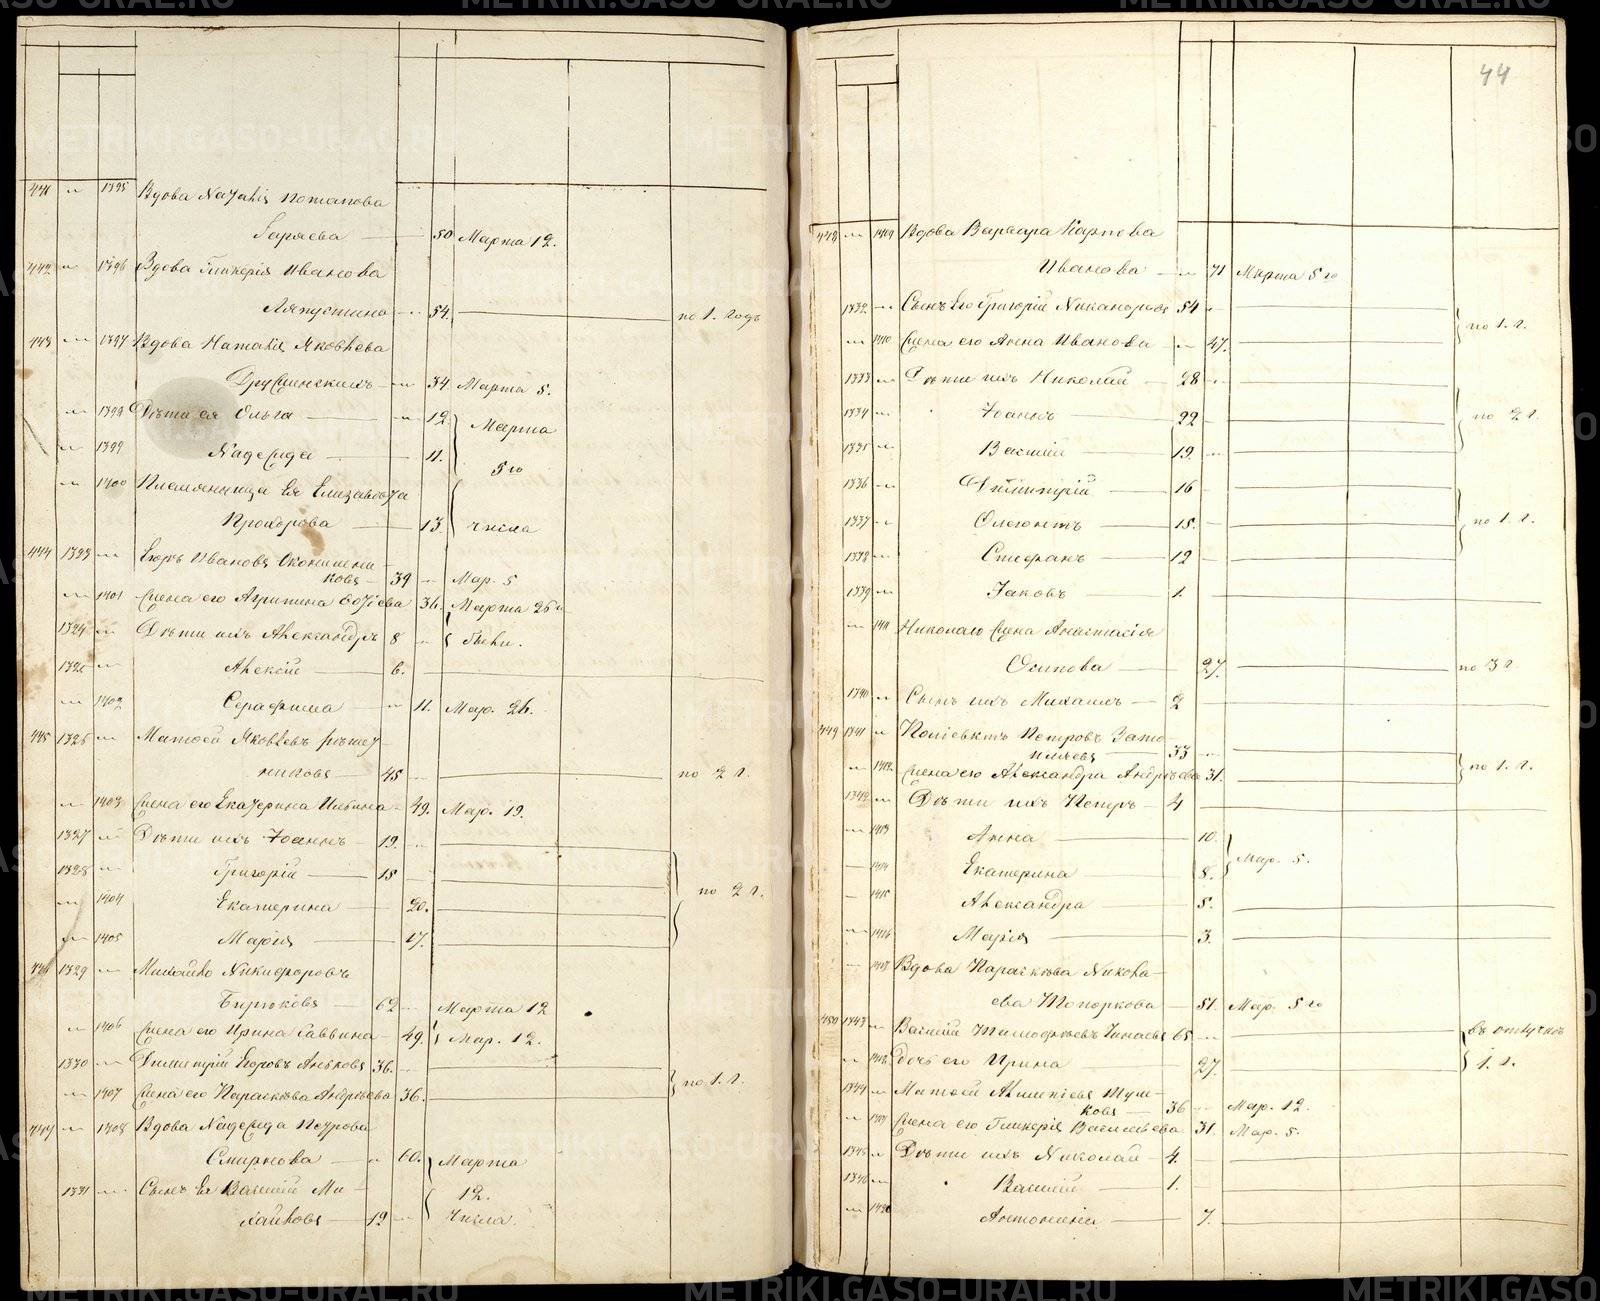 44
441 " 1395 Вдова Наталія Потапова
Гаряева 50 Марта 12.
442 " 1396 Вдова Гликерія Иванова
Ляпустина 54. по 1. годъ
443 " 1397 Вдова Наталія Яковлева
34 Марта 5.
" 1398 Дѣти ея Ольга " 12. Марта
" 1399 Надежда 11. 5го
" 1400 Племянница Ея Елизавета
Прохорова 13. числа
444 1323 " Егоръ Ивановъ
ковъ 39 " Мар. 5
" 1401 Жена его Агрипина 36. Марта 26
1324 " Дѣти ихъ Александръ 8 " были.
1325 " Алексѣй 6.
" 1402 Серафима " 11. Мар. 26.
445 1326 " Матвей Яковлевъ
никовъ 45 " по 2 г.
" 1403 Жена его Екатерина Ильина 49. Мар. 19.
1327 " Дѣти ихъ Іоаннъ 19. "
1328 " Григорій 15 по 2 г.
" 1404 Екатерина 20.
" 1405 Марія 17.
446 1329 " Михайло Никифоровъ
Бирюковъ 62 " Марта 12
" 1406 Жена его Ирина Саввина 49. Мар. 12.
1330 " Димитрій Егоровъ 36. "
" 1407 Жена его Параскева Андреева 36. по 1. г.
447 " 1408 Вдова Надежда Петрова
Смирнова " 60. Марта
1331 " Сынъ Ея Василій Ми-
хайловъ 19 " 12. числа.
448 " 1409 Вдова Варвара Карпова
Иванова " 71 Марта 5го
1332 " Сынъ Его Григорій Никаноровъ 54 " по 1. г.
" 1410 Жена его Анна Иванова " 47.
1333 " Дѣти ихъ Николай 28 "
1334 " Іоаннъ 22 по 2 г.
1335 " Василій 19. "
1336 " Димитрій 16
1337 " 15. по 1. г.
1338 " Стефанъ 12
1339 " Іаковъ 1.
" 1411 Николаю жена Анастасія
Осипова 27. по 3 г.
1340 " Сынъ ихъ Михаилъ 2
449 1341 " Петровъ
33 "
" 1412 Жена его Александра Андреева 31. по 1. г.
1342 " Дѣти ихъ Петръ 4
" 1413 Анна 10.
1414 Екатерина 8. Мар. 5.
1415 Александра 5.
" 1416 Марія 3.
1417 Вдова Параскева Никола-
ева Топоркова 51. Мар. 5го
450 1343 " Василій Тимофѣевъ 65 " въ отлучкѣ
" 1418 дочь его Ирина 27. 1. г.
1344 " Матвей
ковъ 36 Мар. 12.
" 1419 Жена его Гликерія Васильева 31. Мар. 5.
1345 " Дѣти ихъ Николай 4.
1346 " Василій 1.
" 1420 Антонина 7.